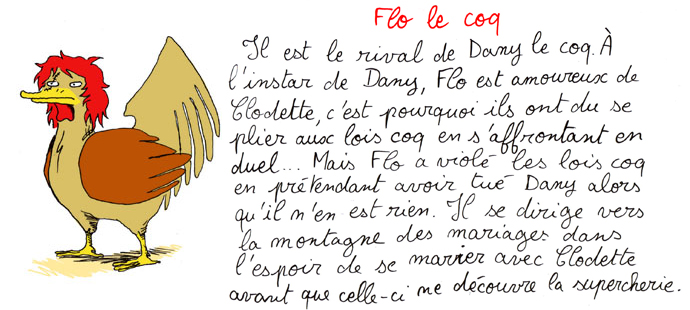 Flo le coq
Il est le rival de Dany le coq. À
l'instar de Dany, Flo est amoureux de
Clodette, c'est pourquoi ils ont du se
plier aux lois coq en s'affrontant en
duel... Mais Flo a violé les lois coq
en prétendant avoir tué Dany alors
qu'il n'en est rien. Il se dirige vers
la montagne des mariages dans
l'espoir de se marier avec Clodette
avant que celle-ci ne découvre la supercherie.